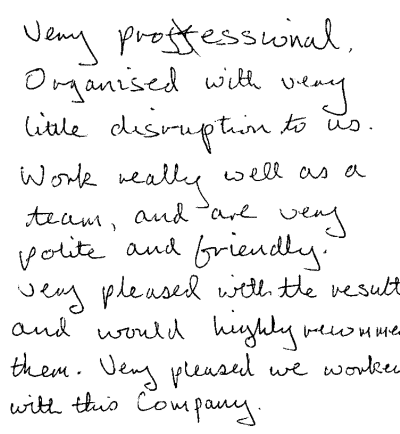 Very professional,
Organised with very
little disruption to us.
Work really well as a
team, and are very
polite and friendly.
Very pleased with the result
and would highly recomme
them. Very pleased we worke
with this Company.